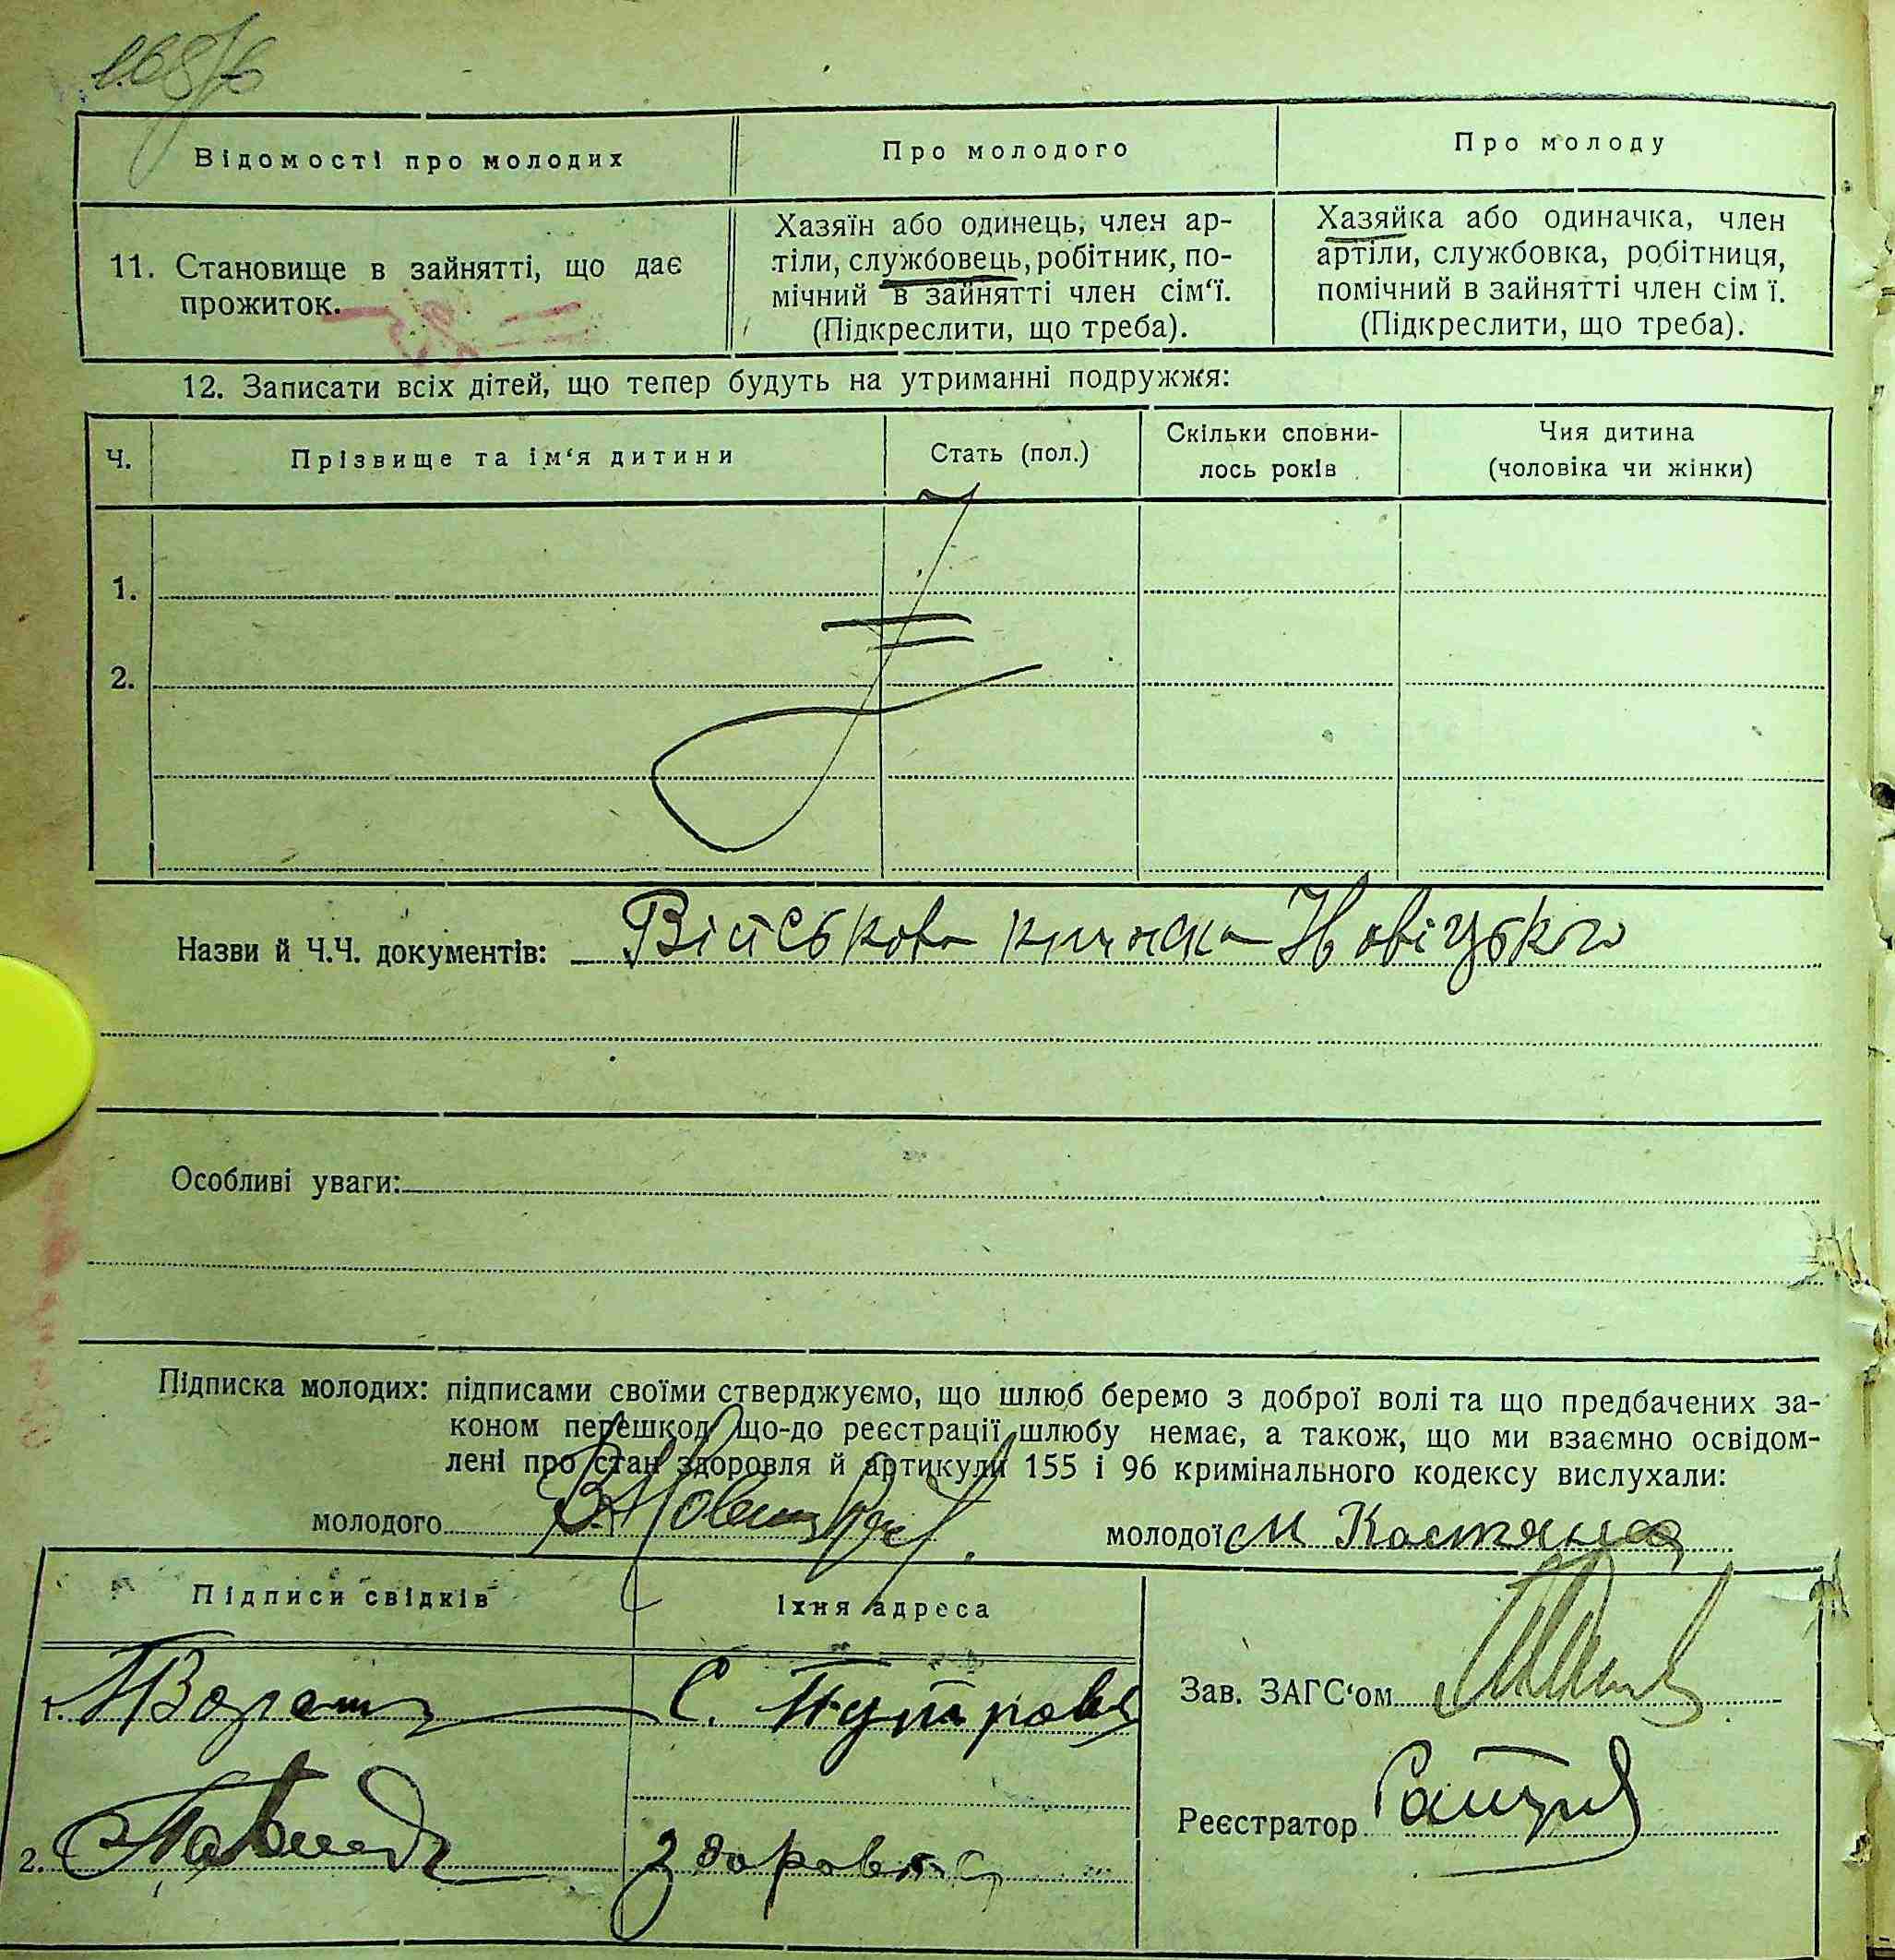 Відомості про молодих
Про молодого
Про молоду
11. Становище в зайнятті, що дає
прожиток.
Хазяїн або одинець, член ар-
тіли, службовець, робітник, по-
мічний в зайнятті член сім‘ї.
(Підкреслити, що треба).
Хазяйка або одиначка, член
артіли, службовка, робітниця,
помічний в зайнятті член сім ї.
(Підкреслити, що треба).
12. Записати всіх дітей, що тепер будуть на утриманні подружжя:
Ч.
Прізвище та ім‘я дитини
Стать (пол.)
Скільки сповни-
лось років
Чия дитина
(чоловіка чи жінки)
1.
2.
Назви й Ч.Ч. документів: Військова книжка Новіцького
Особливі уваги:
Підписка молодих: підписами своїми стверджуємо, що шлюб беремо з доброї волі та що предбачених за-
коном перешкод що-до реєстрації шлюбу немає, а також, що ми взаємно освідом-
лені про стан здоровля й артикули 155 і 96 кримінального кодексу вислухали:
молодого
молодої М Костяная
Підписи свідків
Їхня адреса
1.
Зав. ЗАГС‘ом
Реєстратор
2.